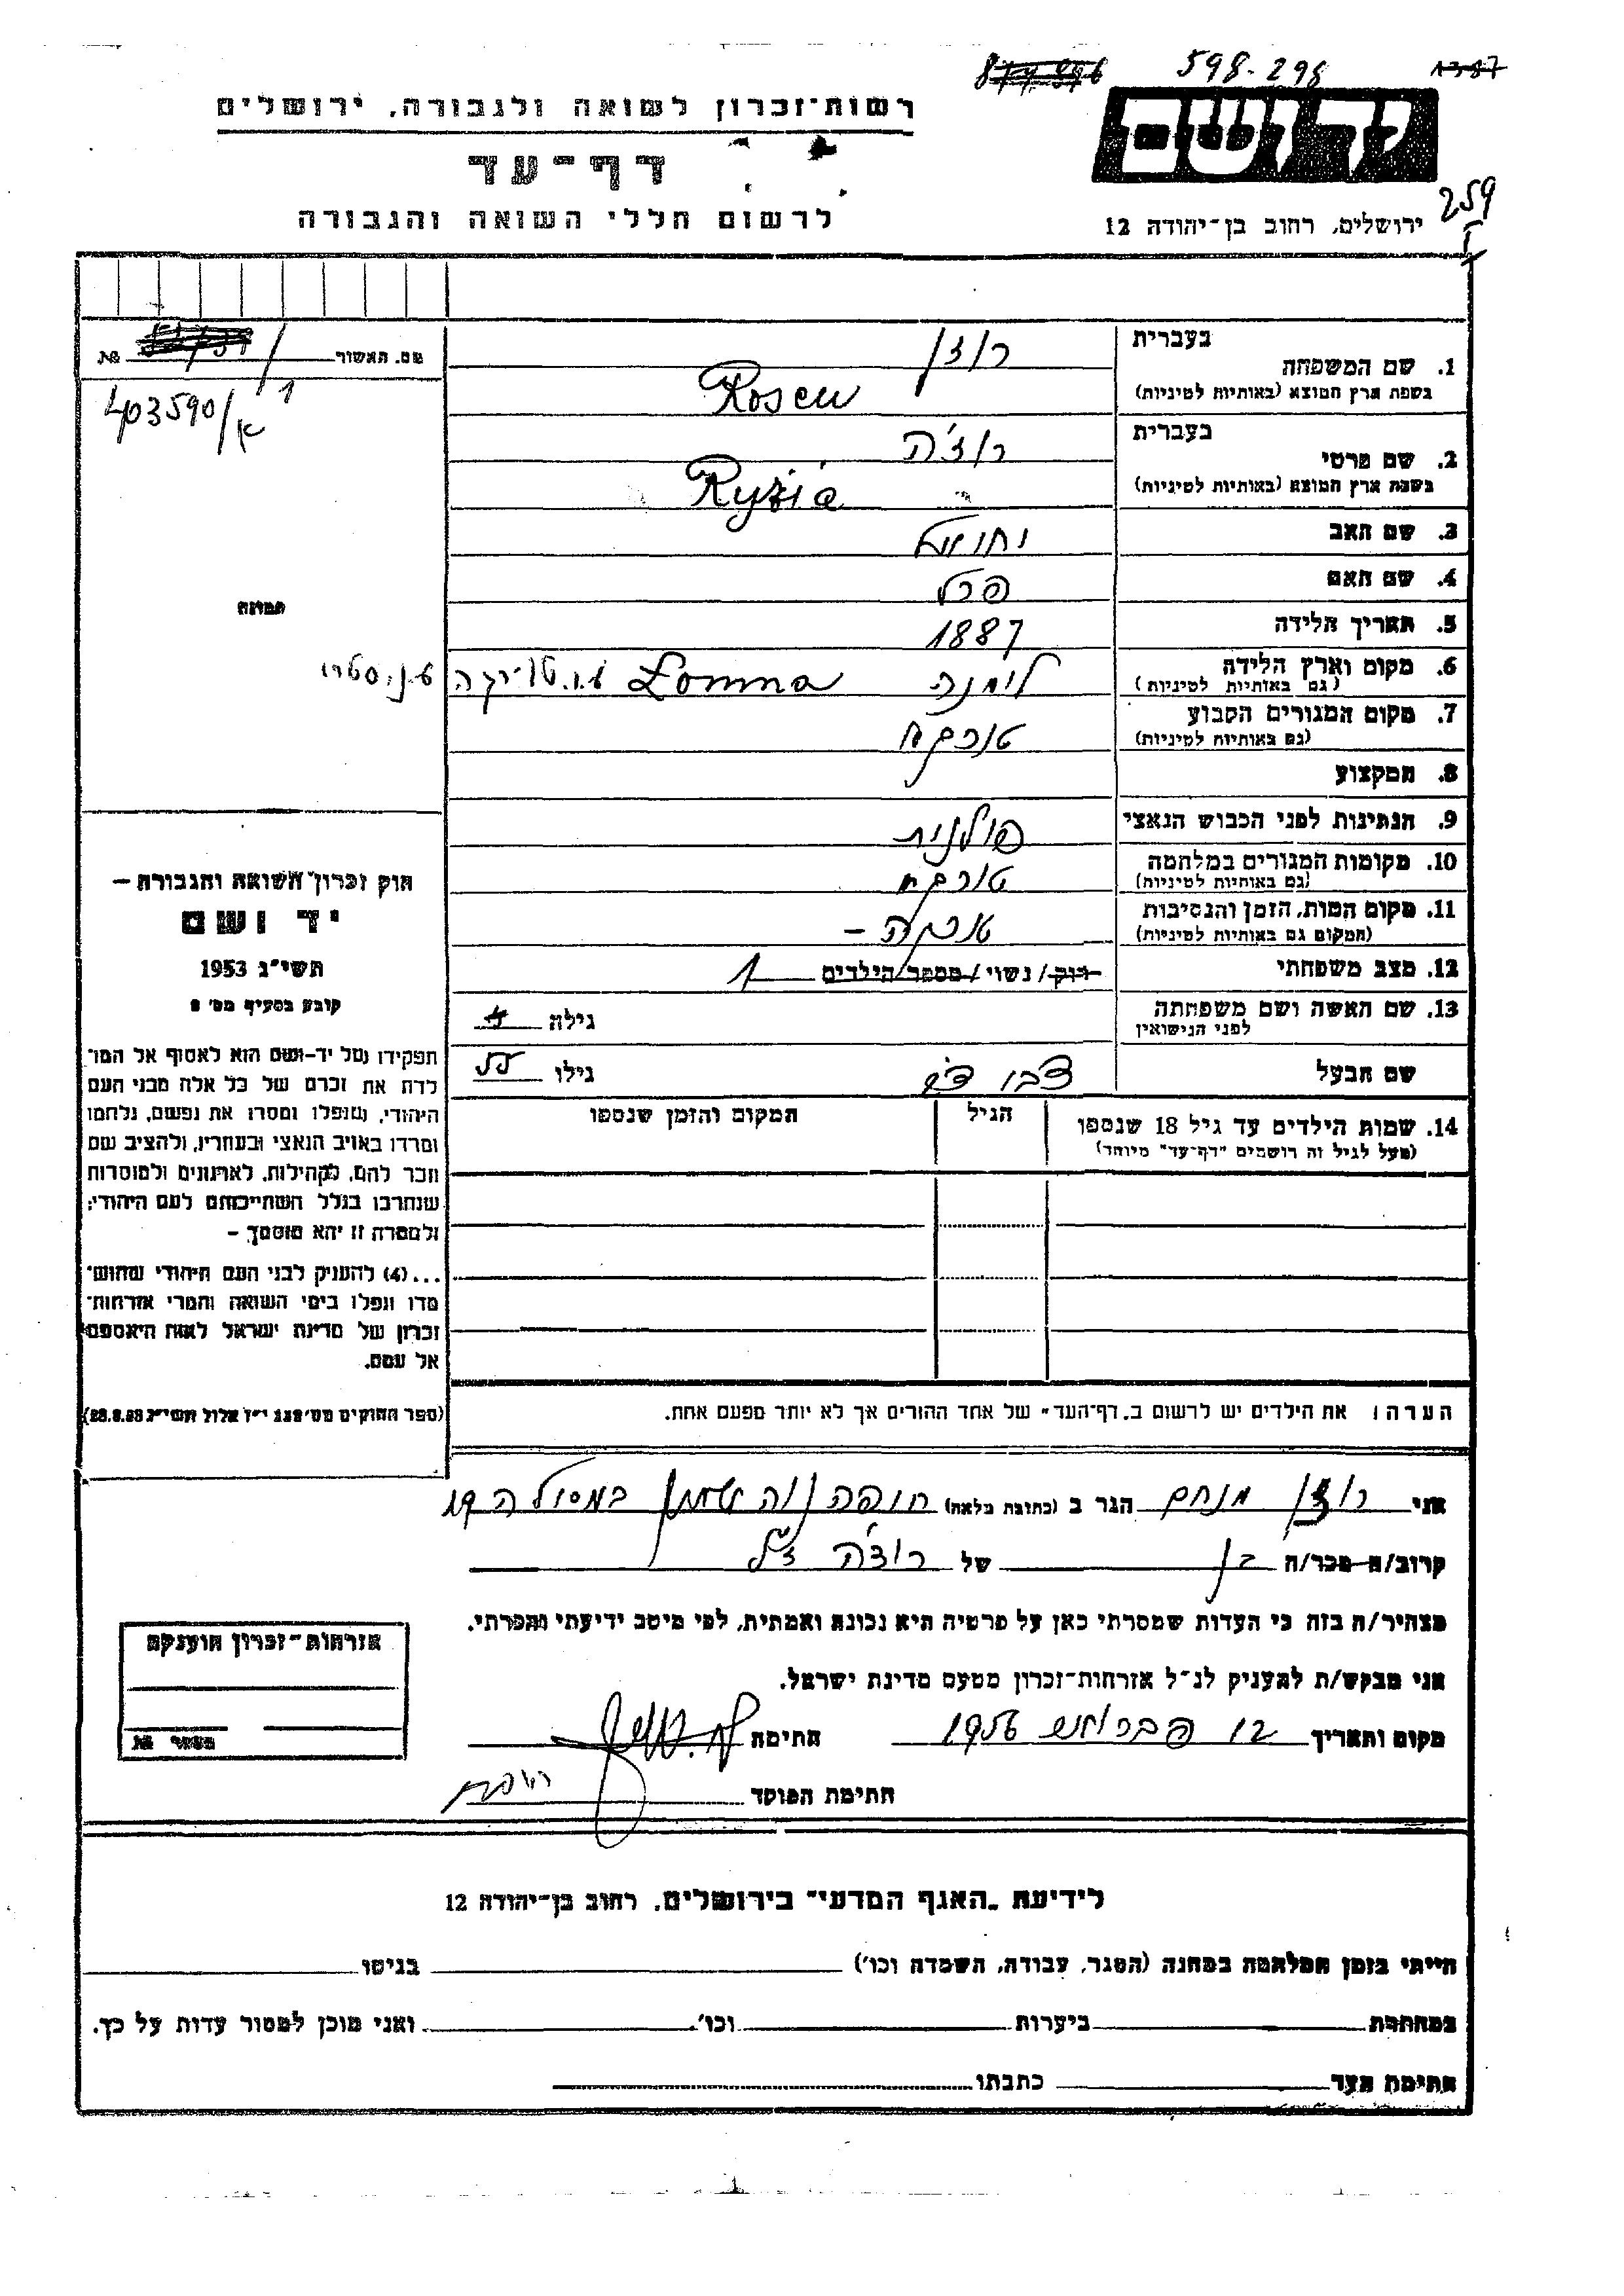 598-298
רשות־זכרון לשואה ולגבורה, ירושלים
יד ושם
דף־עד
259
לרשום חללי השואה והגבורה
ירושלים, רחוב בן־יהודה 12
מס. האשור № 1
403590/א
בעברית
1. שם המשפחה רוזן
בשפת ארץ המוצא (באותיות לטיניות) Rosen
בעברית
2. שם פרטי רוז'ה
בשפת ארץ המוצא (באותיות לטיניות) Ryżia
3. שם האב
4. שם האם פרל
תמונה
5. תאריך הלידה 1887
6. מקום וארץ הלידה לומנה Lomna
(גם באותיות לטיניות)
7. מקום המגורים הקבוע טורקא
(גם באותיות לטיניות)
8. המקצוע
9. הנתינות לפני הכבוש הנאצי פולנית
10. מקומות המגורים במלחמה טורקא
(גם באותיות לטיניות)
11. מקום המות, הזמן והנסיבות טורקה –
(המקום גם באותיות לטיניות)
12. מצב משפחתי רוק/נשוי/מספר הילדים 1
13. שם האשה ושם משפחתה גילה
לפני הנישואין
שם הבעל גילו
14. שמות הילדים עד גיל 18 שנספו הגיל המקום והזמן שנספו
(מעל לגיל זה רושמים "דף־עד" מיוחד)
חוק זכרון השואה והגבורה –
יד ושם
תשי"ג 1953
קובע בסעיף מס' 2
תפקידו של יד-ושם הוא לאסוף אל המו־
לדת את זכרם של כל אלה מבני העם
היהודי, שנפלו ומסרו את נפשם, נלחמו
ומרדו באויב הנאצי ובעוזריו, ולהציב שם
וזכר להם, לקהילות, לארגונים ולמוסדות
שנחרבו בגלל השתייכותם לעם היהודי;
ולמטרה זו יהא מוסמך –
...(4) להעניק לבני העם היהודי שהוש־
מדו ונפלו בימי השואה והמרי אזרחות־
זכרון של מדינת ישראל לאות היאספם
אל עמם.
(ספר החוקים מס' 132 י"ז אלול תשי"ג 28.8.53)
הערה: את הילדים יש לרשום ב„דף־העד" של אחד ההורים אך לא יותר מפעם אחת.
אני רוזן מנחם הגר ב (כתובת מלאה) חיפה נוה שאנן
קרוב/ה מכר/ה בן של רוז'ה ז"ל
מצהיר/ה בזה כי העדות שמסרתי כאן על פרטיה היא נכונה ואמתית, לפי מיטב ידיעתי והכרתי.
אני מבקש/ת להעניק לנ"ל אזרחות־זכרון מטעם מדינת ישראל.
מקום ותאריך 12 פברואר 1956 חתימה
חתימת הפוקד
אזרחות־זכרון הוענקה
מספר №
לידיעת „האגף המדעי" בירושלים, רחוב בן־יהודה 12
הייתי בזמן המלחמה במחנה (הסגר, עבודה, השמדה וכו') בגיטו
במחתרת ביערות וכו' ואני מוכן למסור עדות על כך.
חתימת העד כתבתו